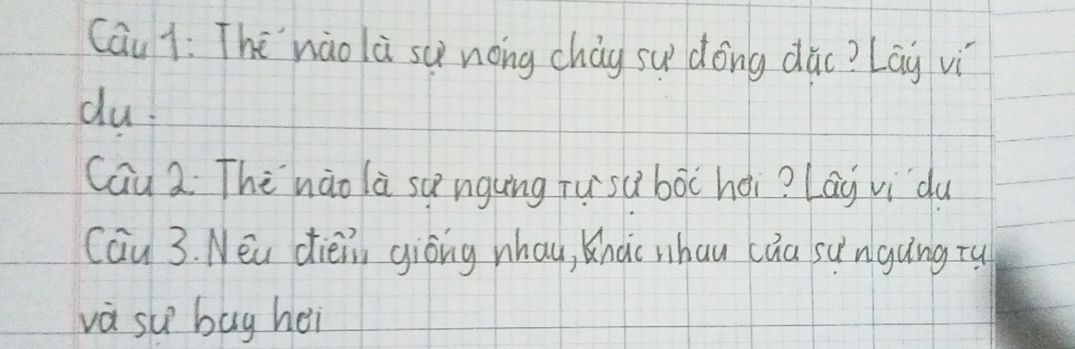 Câu 1: Thế nào là sự nóng chảy sự đông đặc? Lấy ví
dụ.
Câu 2. Thế nào là sự ngưng tụ sự bốc hơi? Lấy ví dụ
Câu 3. Nêu điểm giống nhau, khác nhau của sự ngưng tụ
và sự bay hơi